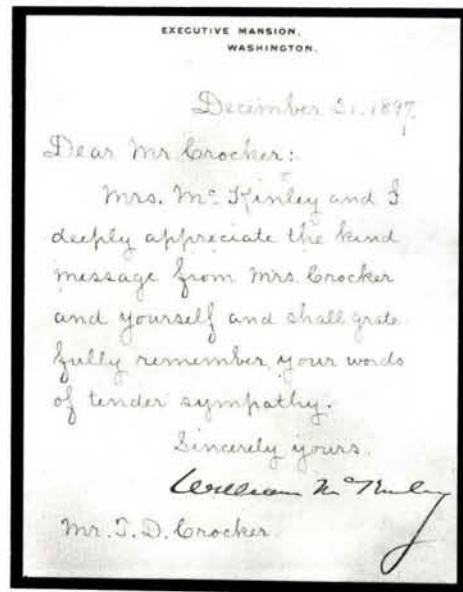 EXECUTIVE MANSION,
WASHINGTON.
December 21. 1897.
Dear Mr. Crocker:
Mrs. McKinley and I
deeply appreciate the kind
message from Mrs. Crocker
and yourself and shall grate
fully remember your words
of tender sympathy.
Sincerely yours.
William McKinley
Mr. T. D. Crocker.